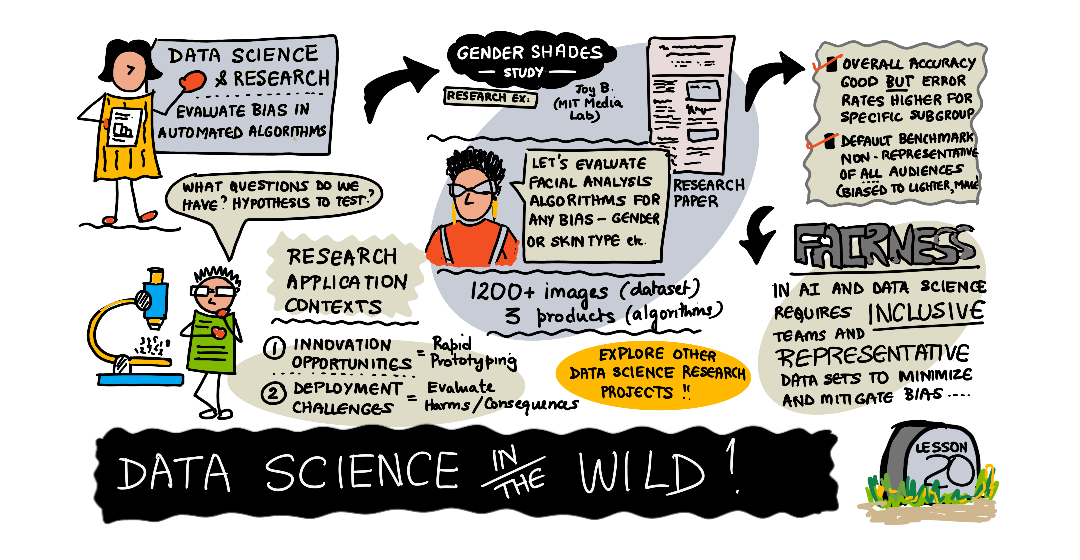 DATA SCIENCE
& RESEARCH
EVALUATE BIAS IN
AUTOMATED ALGORITHMS
WHAT QUESTIONS DO WE
HAVE? HYPOTHESIS TO TEST?
RESEARCH
APPLICATION
CONTEXTS
1 INNOVATION
OPPORTUNITIES = Rapid
Prototyping
2 DEPLOYMENT
CHALLENGES = Evaluate
Harms/Consequences
GENDER SHADES
— STUDY —
RESEARCH EX:
Joy B.
(MIT Media
Lab)
LET'S EVALUATE
FACIAL ANALYSIS
ALGORITHMS FOR
ANY BIAS – GENDER
OR SKIN TYPE etc.
RESEARCH
PAPER
1200+ images (dataset)
3 products (algorithms)
EXPLORE OTHER
DATA SCIENCE RESEARCH
PROJECTS !!
OVERALL ACCURACY
GOOD BUT ERROR
RATES HIGHER FOR
SPECIFIC SUBGROUP
DEFAULT BENCHMARK
NON-REPRESENTATIVE
OF ALL AUDIENCES
(BIASED TO LIGHTER, MALE)
FAIRNESS
IN AI AND DATA SCIENCE
REQUIRES INCLUSIVE
TEAMS AND
REPRESENTATIVE
DATA SETS TO MINIMIZE
AND MITIGATE BIAS ....
DATA SCIENCE IN THE WILD!
LESSON
20